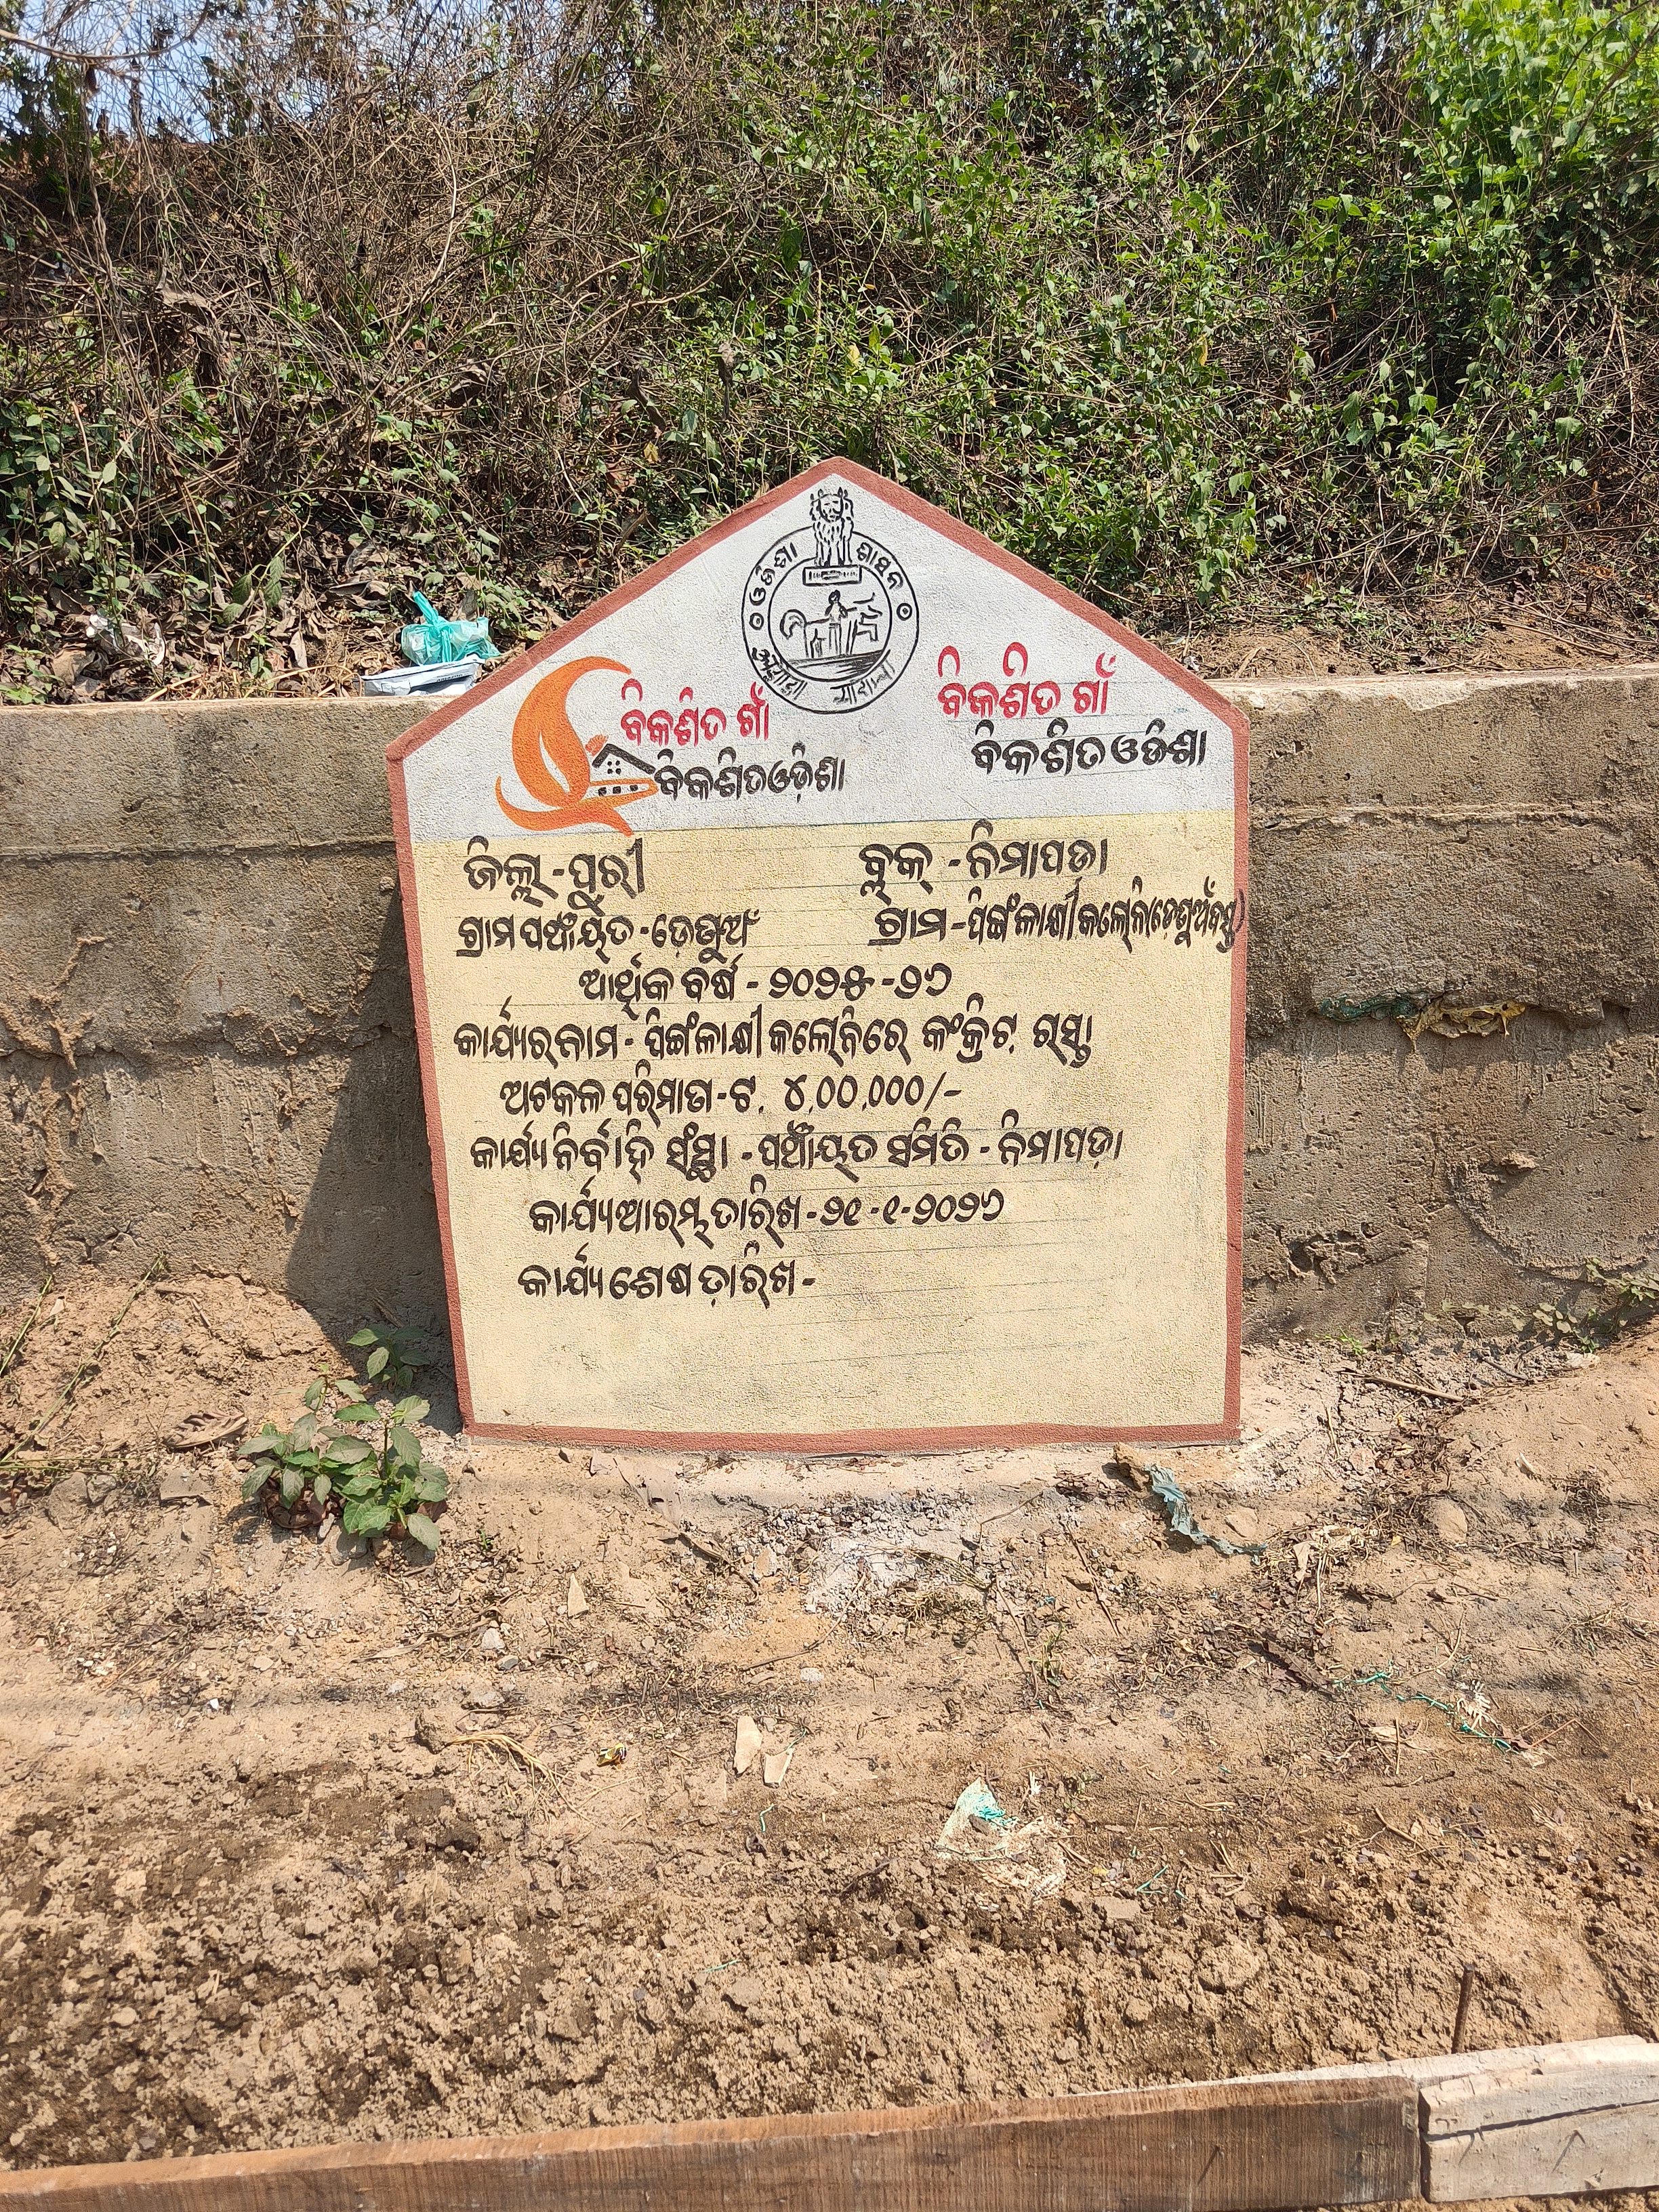 ଓଡିଶା ଶାସନ
ବିକଶିତ ଗାଁ
ବିକଶିତ ଓଡ଼ିଶା
ବିକଶିତ ଗାଁ
ବିକଶିତ ଓଡିଶା
ଜିଲ୍ଲା - ପୁରୀ
ବ୍ଲକ୍ - ନିମାପଡା
ଗ୍ରାମ ପଞ୍ଚାୟତ - ଡ଼େଙ୍ଗୁଅଁ
ଗ୍ରାମ - ପିଙ୍ଗଳାକ୍ଷୀ କଲୋନି
ଆର୍ଥିକ ବର୍ଷ - ୨୦୨୫ - ୨୬
କାର୍ଯ୍ୟର ନାମ - ପିଙ୍ଗଳାକ୍ଷୀ କଲୋନିରେ କଂକ୍ରିଟ୍ ରାସ୍ତା
ଅଟକଳ ପରିମାଣ - ଟ. ୪,୦୦,୦୦୦/-
କାର୍ଯ୍ୟ ନିର୍ବାହି ସଂସ୍ଥା - ପଞ୍ଚାୟତ ସମିତି - ନିମାପଡ଼ା
କାର୍ଯ୍ୟ ଆରମ୍ଭ ତାରିଖ - ୨୧ - ୧ - ୨୦୨୬
କାର୍ଯ୍ୟ ଶେଷ ତାରିଖ -